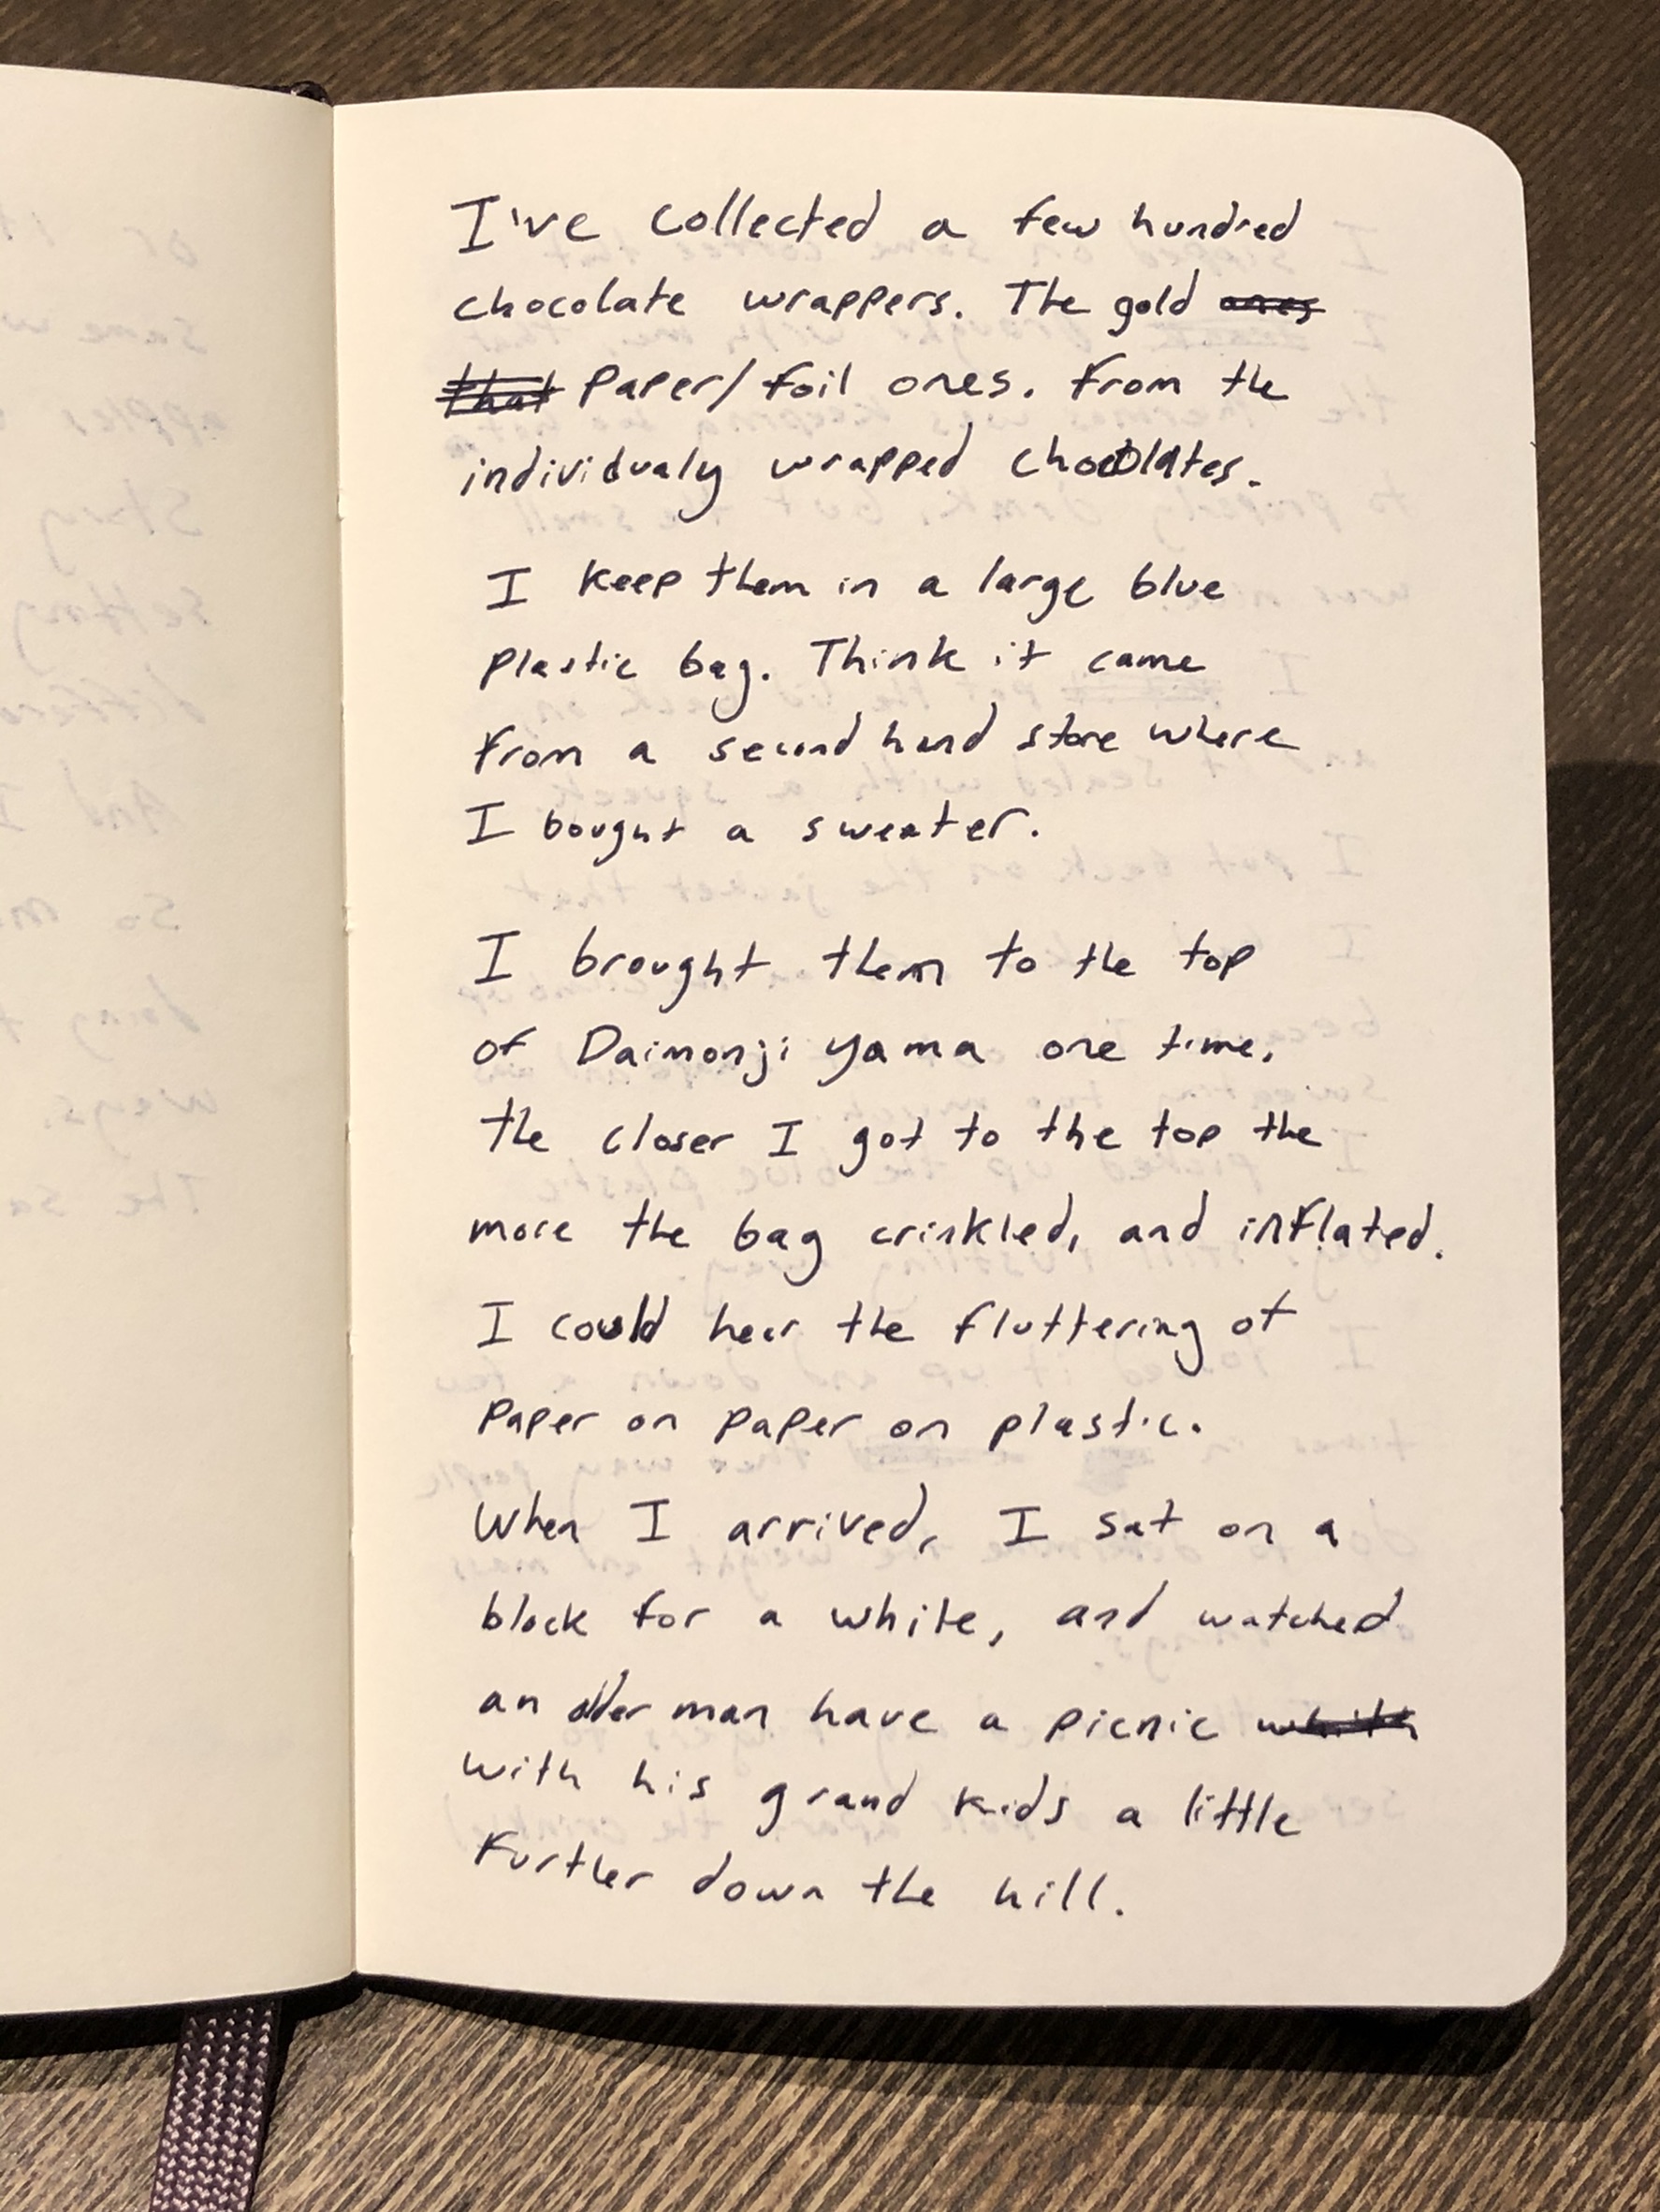 I've collected a few hundred
chocolate wrappers. The gold ones
that paper/foil ones. From the
individualy wrapped chocolates.
I keep them in a large blue
plastic bag. Think it came
from a second hand store where
I bought a sweater.
I brought them to the top
of Daimonji yama one time.
the closer I got to the top the
more the bag crinkled, and inflated.
I could hear the fluttering of
paper on paper on plastic.
When I arrived, I sat on a
block for a while, and watched
an older man have a picnic
with his grand kids a little
further down the hill.